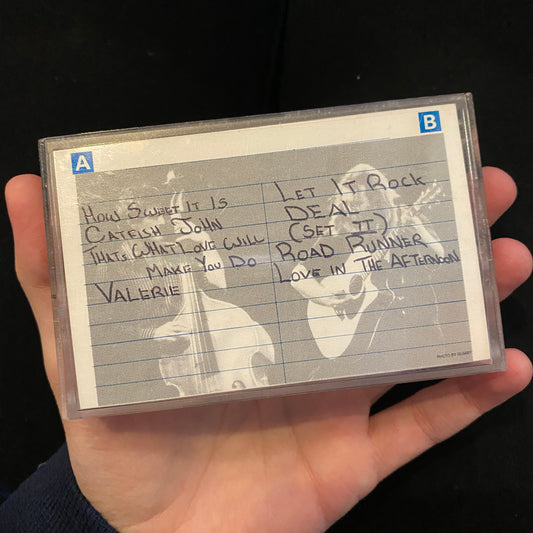 A
B
How Sweet It Is
Catfish John
That's What Love Will
Make You Do
Valerie
Let It Rock
Deal
(Set II)
Road Runner
Love In The Afternoon
PHOTO BY